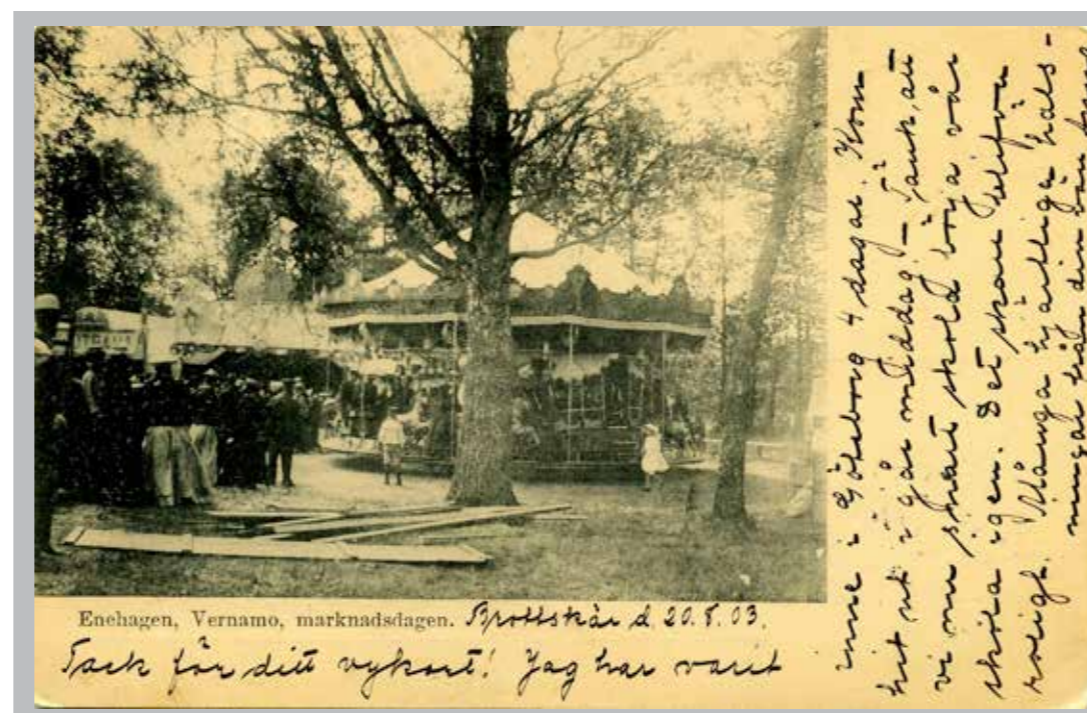 Enehagen, Vernamo, marknadsdagen. Brottskär d. 20.8.03.
Tack för ditt vykort! Jag har varit
inne i Göteborg 4 dagar. Kom
hit ut i går middag. – Tänk, att
vi nu snart skola börja vår
skola igen. Det skall bli
roligt. Många hjärtliga häls-
ningar från din vän